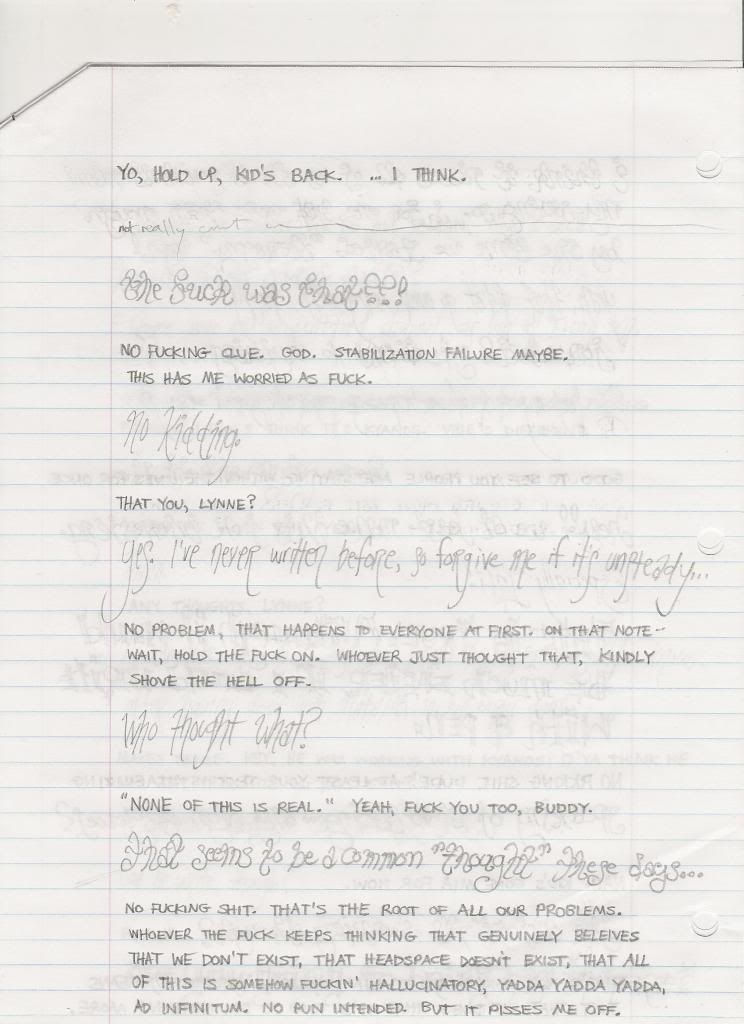 YO, HOLD UP, KID'S BACK. ...I THINK.
not really can't
The fuck was that?!?!
NO FUCKING CLUE. GOD. STABILIZATION FAILURE MAYBE.
THIS HAS ME WORRIED AS FUCK.
No kidding.
THAT YOU, LYNNE?
Yes. I've never written before, so forgive me if it's unsteady...
NO PROBLEM, THAT HAPPENS TO EVERYONE AT FIRST. ON THAT NOTE--
WAIT, HOLD THE FUCK ON. WHOEVER JUST THOUGHT THAT, KINDLY
SHOVE THE HELL OFF.
Who thought what?
"NONE OF THIS IS REAL." YEAH, FUCK YOU TOO, BUDDY.
That seems to be a common "thought" these days...
NO FUCKING SHIT. THAT'S THE ROOT OF ALL OUR PROBLEMS.
WHOEVER THE FUCK KEEPS THINKING THAT GENUINELY BELEIVES
THAT WE DON'T EXIST, THAT HEADSPACE DOESN'T EXIST, THAT ALL
OF THIS IS SOMEHOW FUCKIN' HALLUCINATORY, YADDA YADDA YADDA,
AD INFINITUM. NO PUN INTENDED. BUT IT PISSES ME OFF.